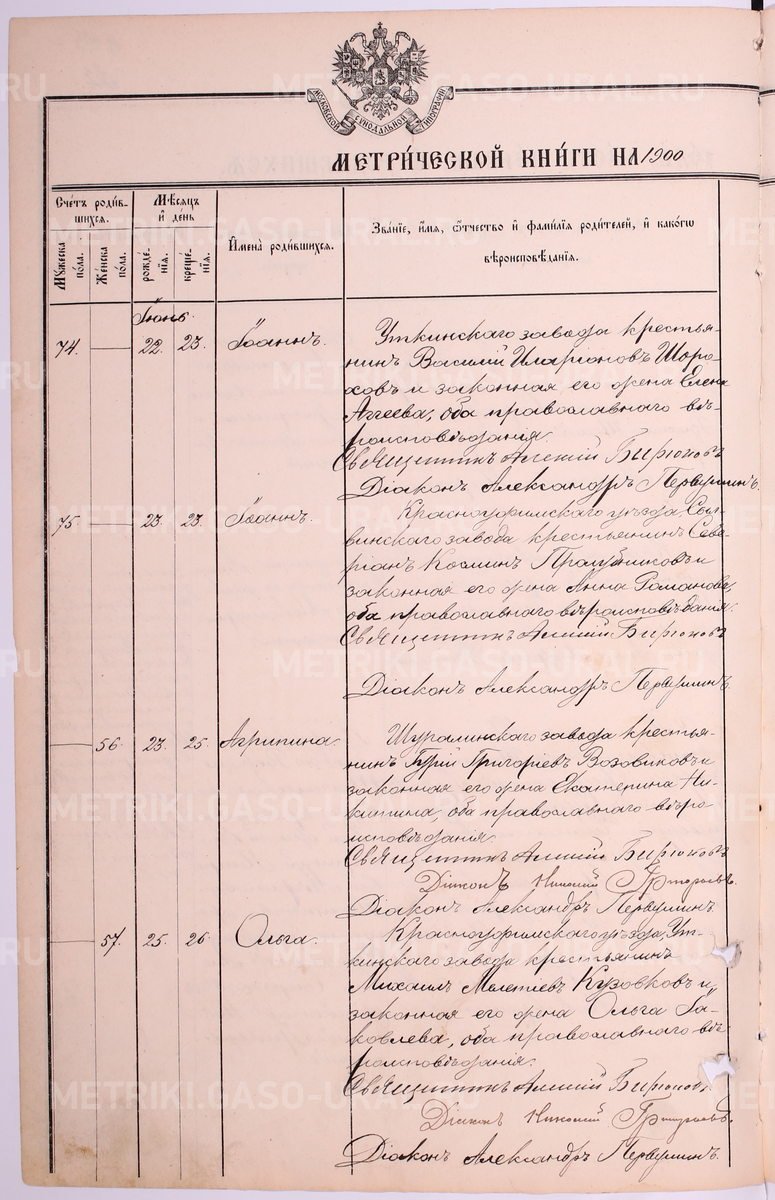 МОСКОВСКОЙ СѴНОДАЛЬНОЙ ТИПОГРАФІИ
МЕТРИ́ЧЕСКОЙ КНИ́ГИ НА 1900
Сче́тъ роди́в-
шихся.
Мѣ́сяцъ
и҆ де́нь
Мꙋ́жеска по́ла.
Же́нска по́ла.
рожде́-
нїѧ.
креще́-
нїѧ.
И҆мена̀ роди́вшихся.
Зва́нїе, и҆́мѧ, ѻ҆́тчество и҆ фами́лїѧ роди́телей, и҆ како́гѡ
вѣроисповѣ́данїѧ.
Іюнь.
74. — 22. 23. Іоаннъ.
Уткинскаго завода крестья-
нинъ Василій Иларіоновъ Шоро-
ховъ и законная его жена Елена
Аггеева, оба православнаго вѣ-
роисповѣданія.
Священникъ Алексій Бирюковъ
Діаконъ Александръ Первушинъ.
75. — 23. 23. Іоаннъ.
Красноуфимскаго уѣзда, Сыл-
винскаго завода крестьянинъ Севе-
ріанъ Космин и
законная его жена Анна Романова,
оба православнаго вѣроисповѣданія.
Священникъ Алексій Бирюковъ
Діаконъ Александръ Первушинъ.
— 56. 23. 25. Агрипина.
Шуралинскаго завода крестья-
нинъ Гурій Григоріевъ Возовиковъ и
законная его жена Екатерина Ни-
китина, оба православнаго вѣро-
исповѣданія.
Священникъ Алексій Бирюковъ
Діаконъ Николай Григорьевъ.
Діаконъ Александръ Первушинъ.
— 57. 25. 26. Ольга.
Красноуфимскаго уѣзда, Ут-
кинскаго завода крестьянинъ
Михаилъ Мелетіевъ Кузовковъ и
законная его жена Ольга Іа-
ковлева, оба православнаго вѣ-
роисповѣданія.
Священникъ Алексій Бирюковъ.
Діаконъ Николай Григорьевъ.
Діаконъ Александръ Первушинъ.
METRIKI.GASO-URAL.RU